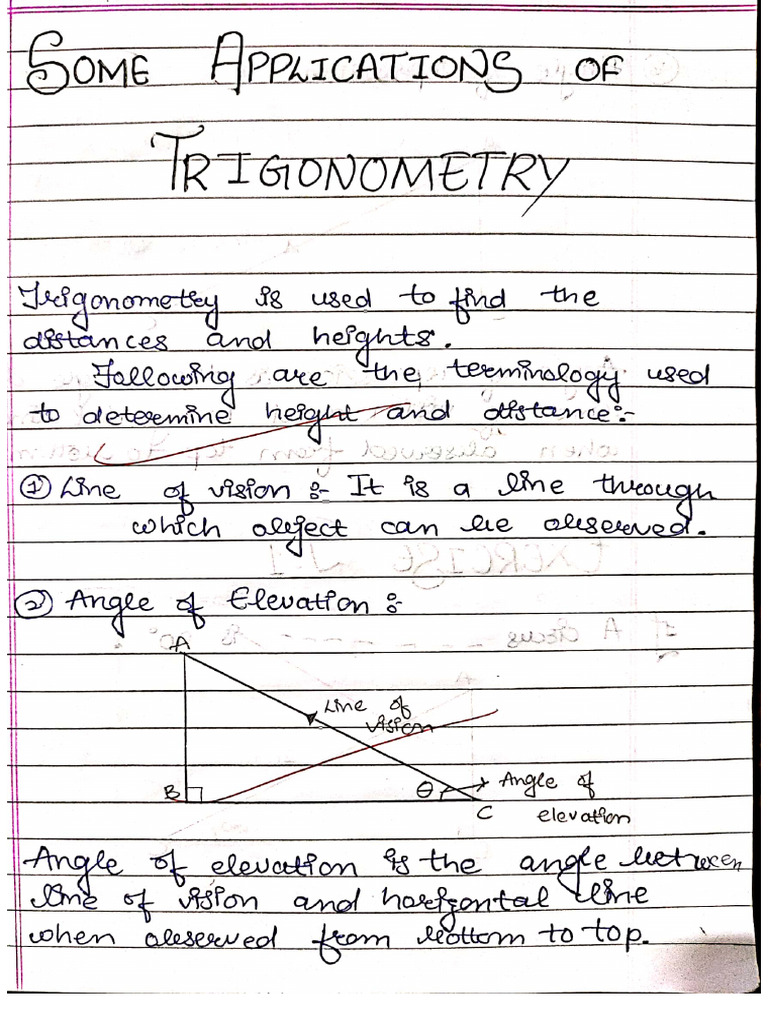 SOME APPLICATIONS OF
TRIGONOMETRY
Trigonometry is used to find the
distances and heights.
Following are the terminology used
to determine height and distance:-
① Line of vision :- It is a line through
which object can be observed.
② Angle of Elevation :-
A
Line of
vision
B
θ
Angle of
C
elevation
Angle of elevation is the angle between
line of vision and horizontal line
when observed from bottom to top.